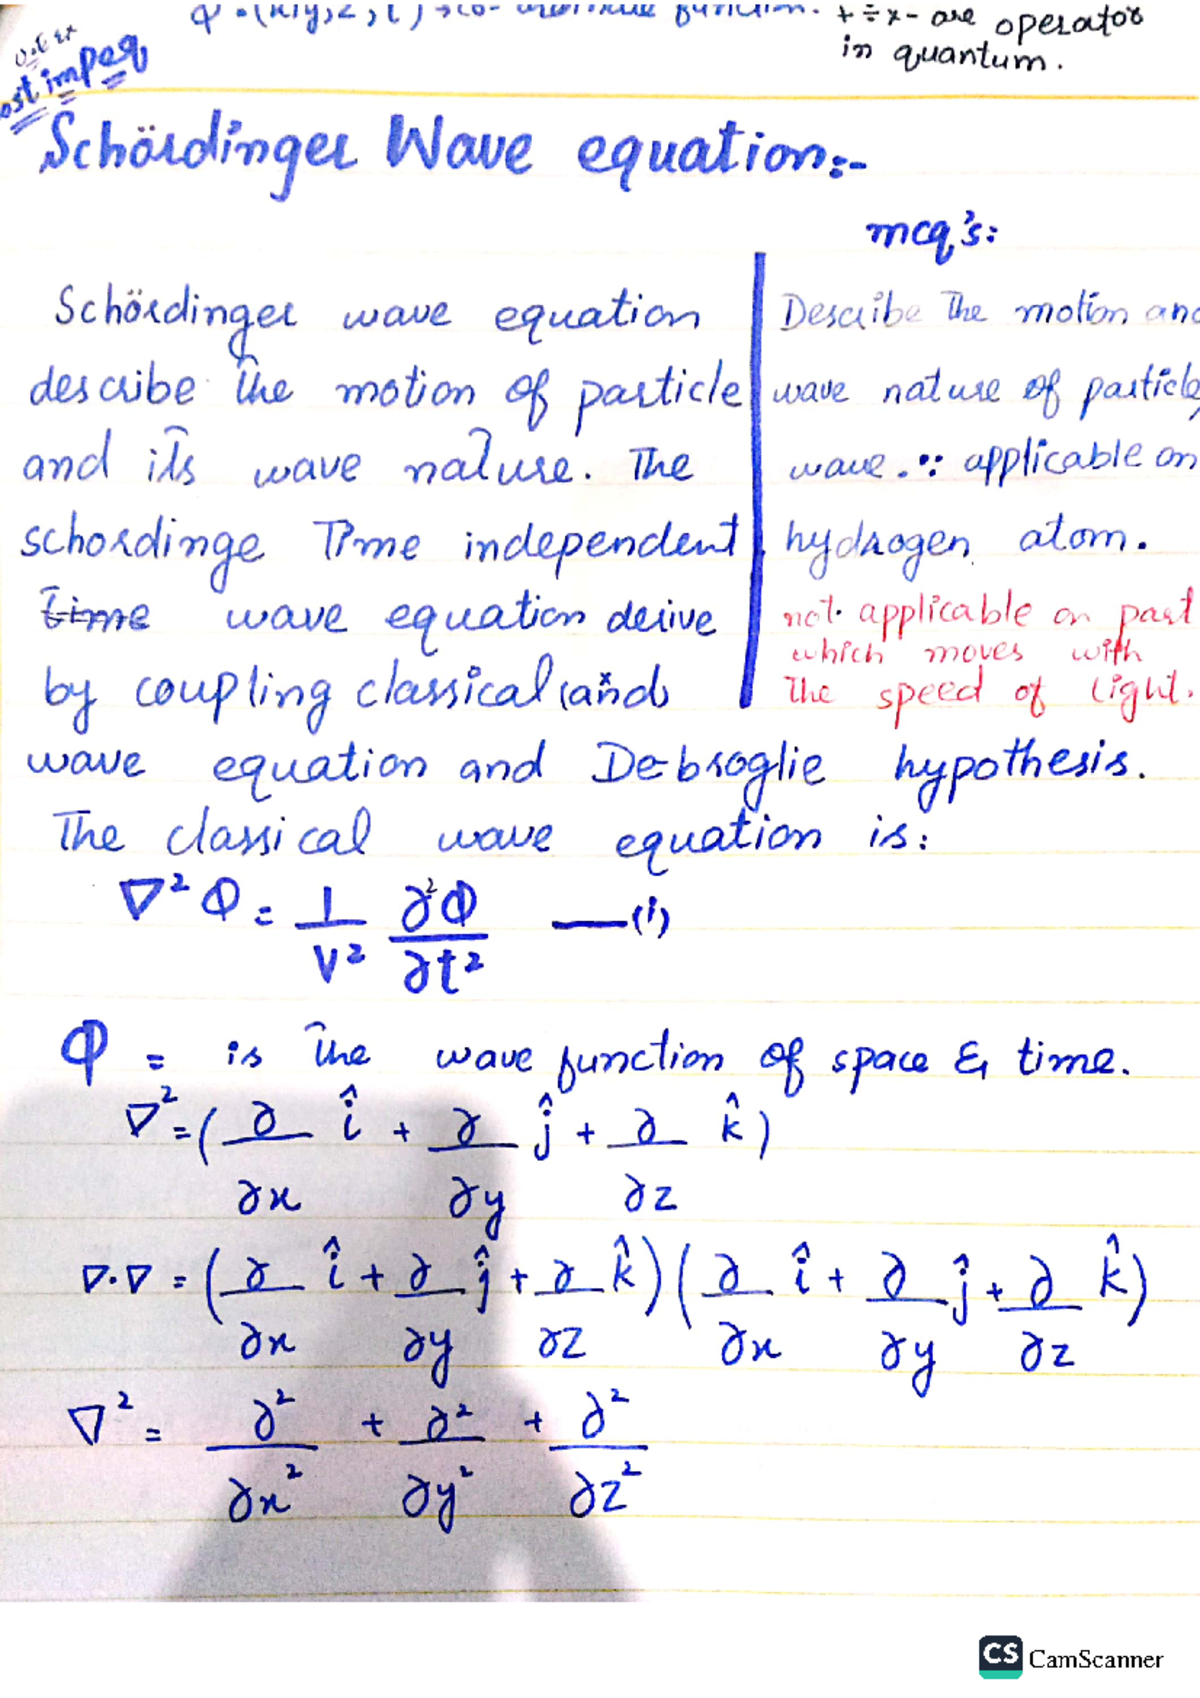 φ = (x, y, z, t) → co- function. + ÷ x - are operator
in quantum.
ost impeq
Schördinger Wave equation:-
mcq's:
Schördinger wave equation
describe the motion of particle
and its wave nature. The
schordinge Time independent
time wave equation derive
by coupling classical (and)
wave equation and De-broglie hypothesis.
Describe the motion and
wave nature of particle,
wave. ∵ applicable on
hydrogen atom.
not applicable on part
which moves with
the speed of light.
The classical wave equation is:
∇²Φ = 1/V² ∂²Φ/∂t² —(i)
Φ = is the wave function of space & time.
∇² = (∂/∂x î + ∂/∂y ĵ + ∂/∂z k̂)
∇.∇ = (∂/∂x î + ∂/∂y ĵ + ∂/∂z k̂) (∂/∂x î + ∂/∂y ĵ + ∂/∂z k̂)
∇² = ∂²/∂x² + ∂²/∂y² + ∂²/∂z²
CS CamScanner